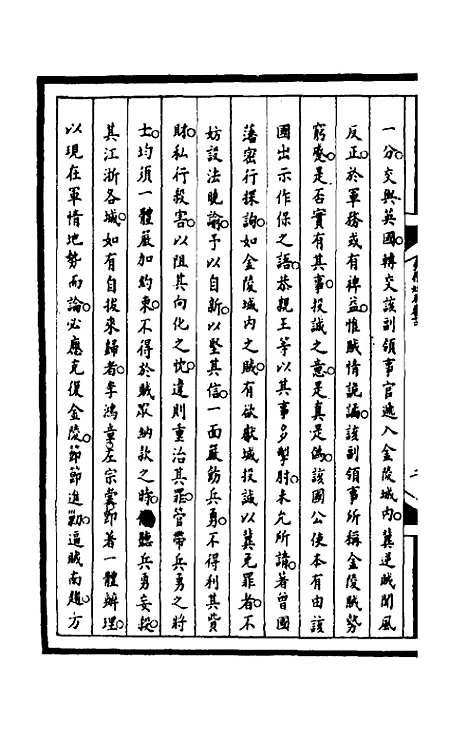 一分交與英國轉交該副領事官遞入金陵城内冀逆賊聞風
反正於軍務或有裨益惟賊情詭譎該副領事所稱金陵賊勢
窮蹙是否實有其事投誠之意是真是偽該國公使本有由該
國出示作保之語恭親王等以其事多掣肘未允所請著曾國
藩密行探詢如金陵城内之賊有欲獻城投誠以冀免罪者不
妨設法曉諭予以自新以堅其信一面嚴飭兵勇不得利其貲
財私行殺害以阻其向化之忱違則重治其罪管帶兵勇之將
士均須一體嚴加約束不得於賊眾納款之時聽兵勇妄殺
其江浙各城如有自拔來歸者李鴻章左宗棠即著一體辦理
以現在軍情地勢而論必應克復金陵節節進勦逼賊南趨方